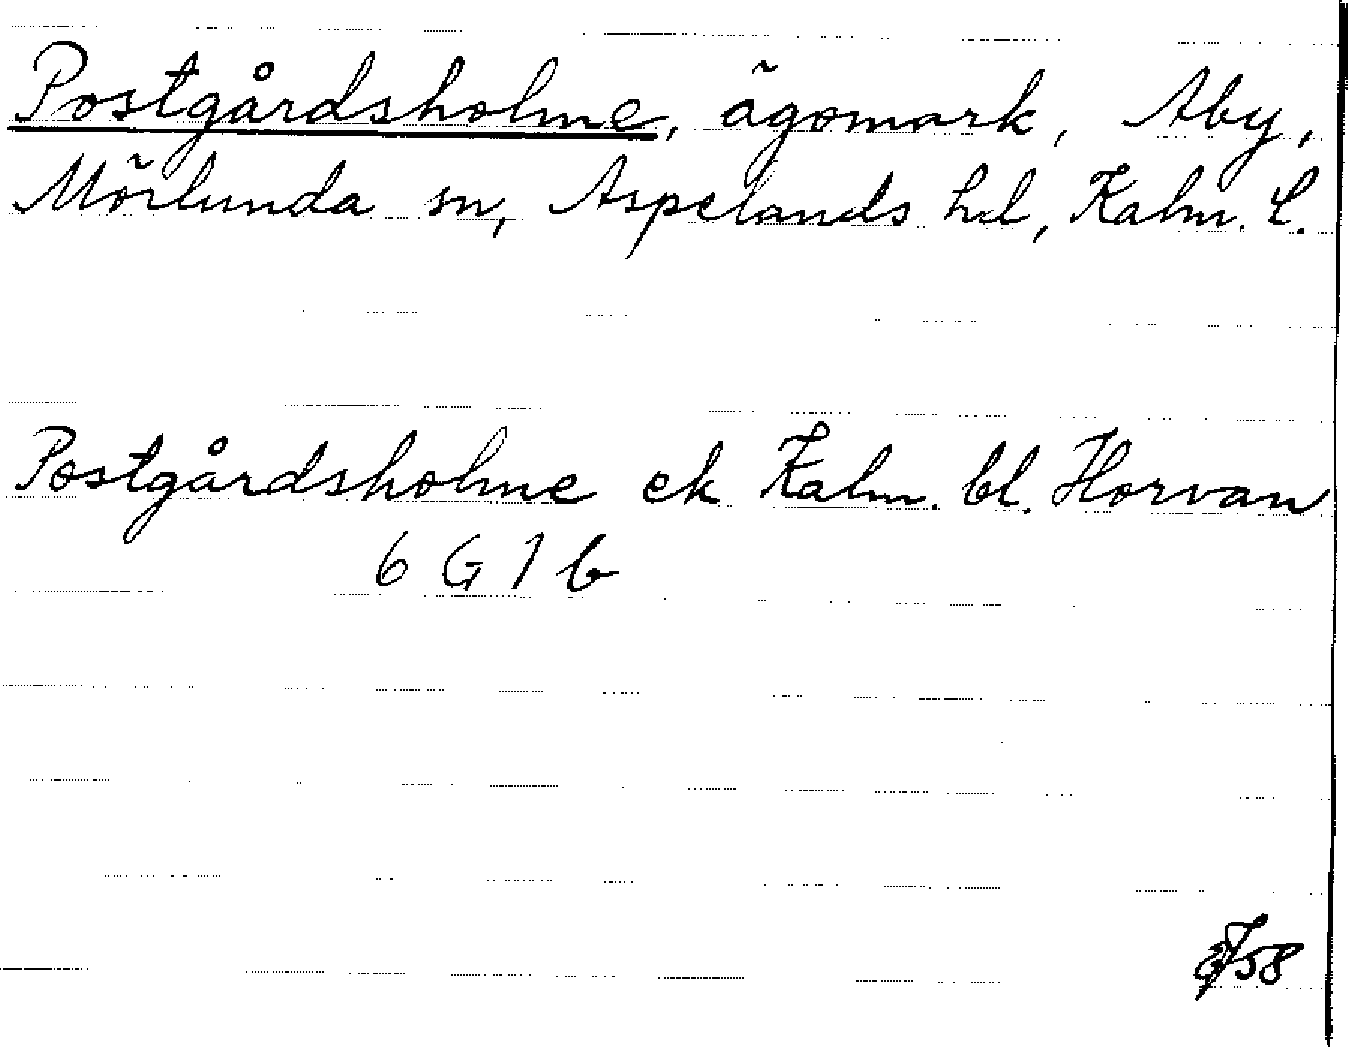 Postgårdsholme, ägomark, Åby,
Mörlunda sn, Aspelands hd, Kalm. l.
Postgårdsholme ek Kalm. bl. Horvan
6 G 1 b